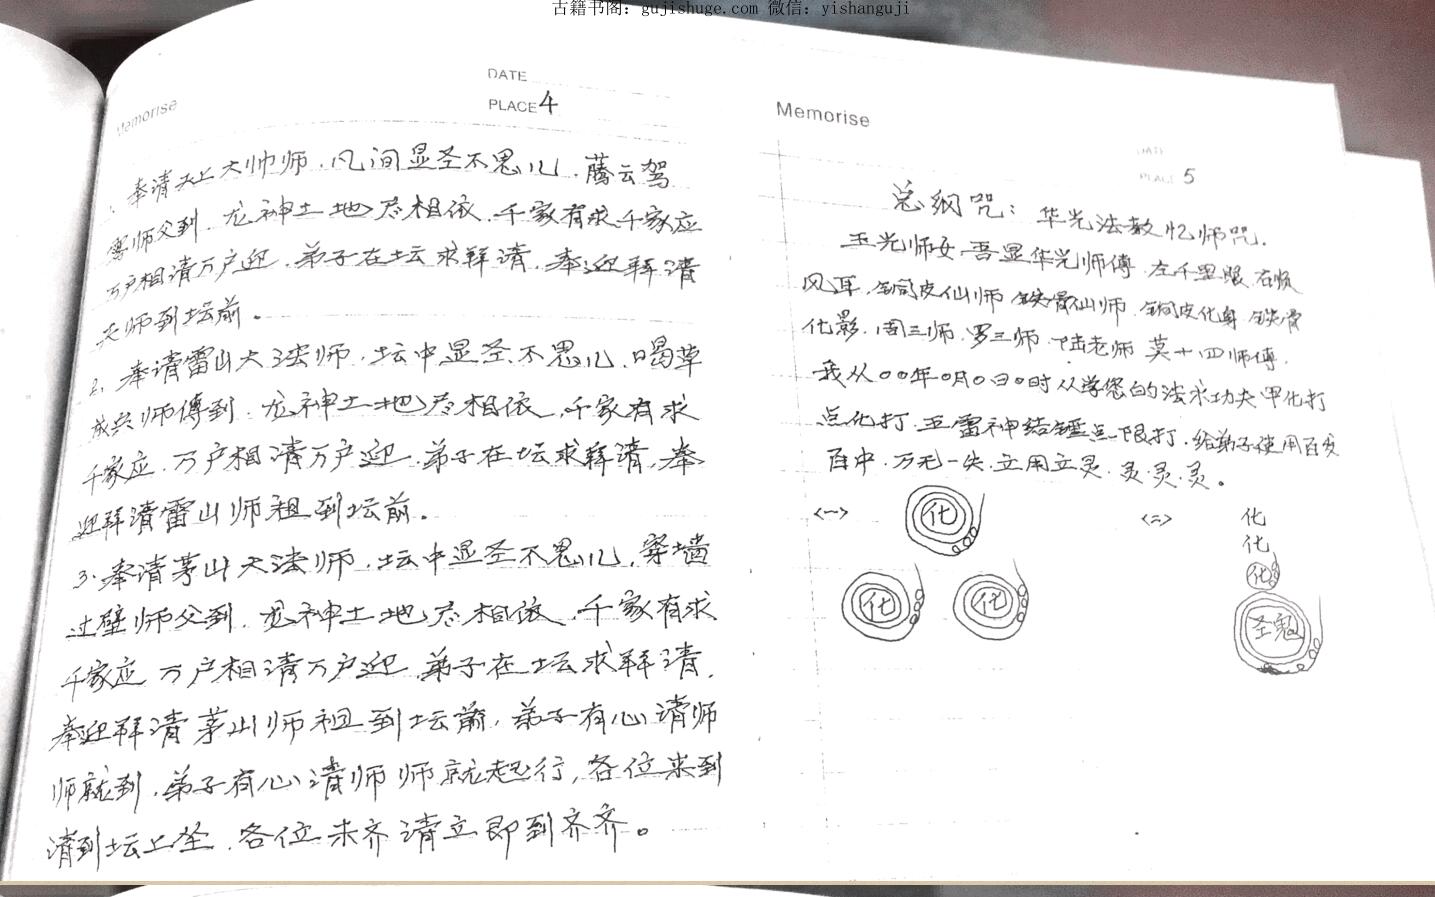 古籍书阁：gujishuge.com 微信：yishanguji
Memorise
DATE
PLACE 4
1、奉请天上大帅师.凡间显圣不思儿.腾云驾
雾师父到.龙神土地尽相依.千家有求千家应
万户相清万户迎.弟子在坛求拜请.奉迎拜请
天师到坛前。
2、奉请雷山大法师.坛中显圣不思儿.喝草
成兵师傅到.龙神土地尽相依.千家有求
千家应.万户相清万户迎.弟子在坛求拜请.奉
迎拜请雷山师祖到坛前。
3.奉请茅山大法师.坛中显圣不思儿.穿墙
过壁师父到.龙神土地尽相依.千家有求
千家应 万户相请万户迎.弟子在坛求拜请.
奉迎拜请茅山师祖到坛前.弟子有心请师
师就到.弟子有心请师师就起行,各位来到
请到坛上坐.各位未齐请立即到齐齐。
Memorise
DATE
PLACE 5
总纲咒：华光法教忆师咒.
玉光师女.吾显华光师傅.左千里眼.右顺
风耳.铜皮仙师 铁骨仙师.铜皮化身 铁骨
化影.周三师.罗三师.陆老师 莫十四师傅.
我从00年0月0日0时从学您的法术功夫 甲化打
点化打.五雷神结锤点限打.给弟子使用百发
百中.万无一失.立用立灵.灵.灵.灵。
<一>
化
化
化
<二>
化
化
化
圣鬼